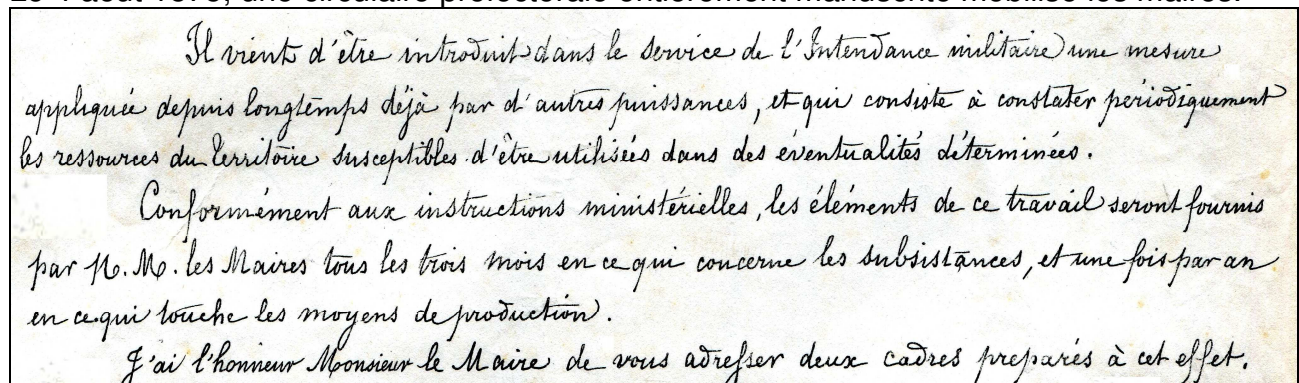 août 1878, une circulaire préfectorale entièrement manuscrite mobilise les maires.
Il vient d'être introduit dans le service de l'Intendance militaire une mesure
appliquée depuis longtemps déjà par d'autres puissances, et qui consiste à constater périodiquement
les ressources du Territoire susceptibles d'être utilisées dans des éventualités déterminées.
Conformément aux instructions ministérielles, les éléments de ce travail seront fournis
par M. M. les Maires tous les trois mois en ce qui concerne les subsistances, et une fois par an
en ce qui touche les moyens de production.
J'ai l'honneur Monsieur le Maire de vous adresser deux cadres préparés à cet effet.